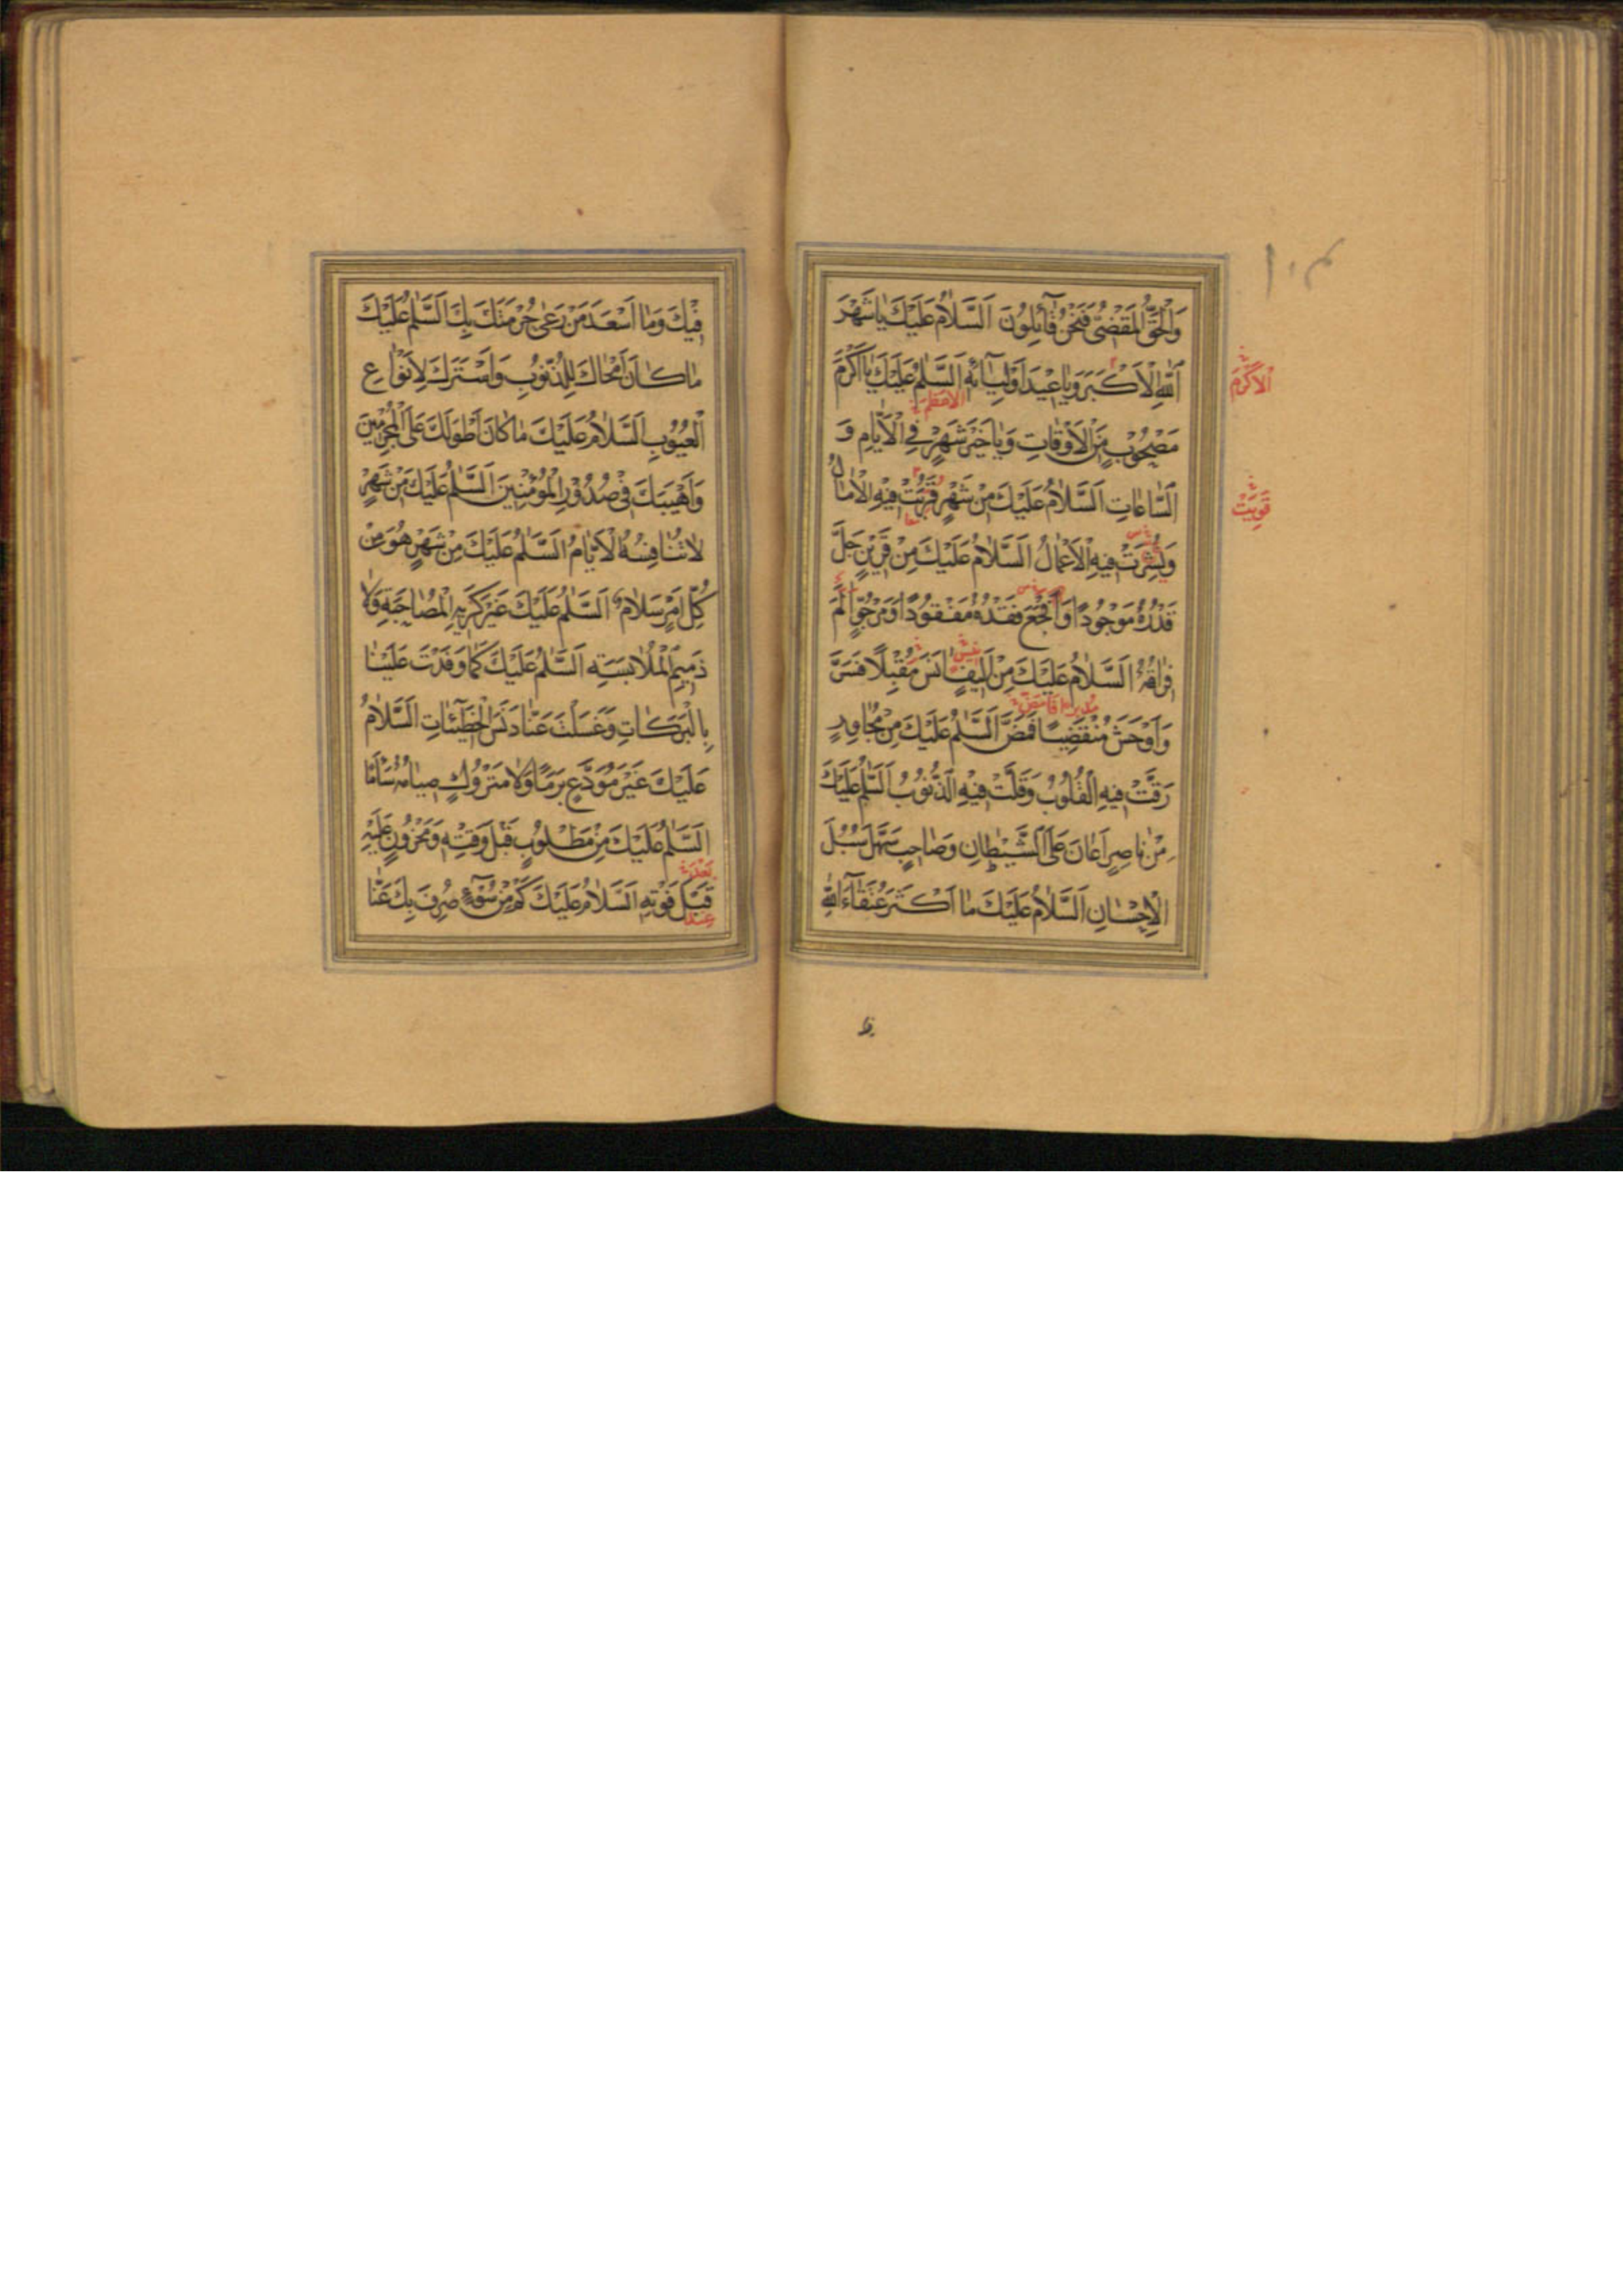 وَالْحَقُّ الْمَقْضِيُّ فَنَحْنُ قَآئِلُونَ اَلسَّلَامُ عَلَيْكَ يَا شَهْرَ
اَللّٰهِ الْاَكْبَرَ وَيَا عِيدَ اَوْلِيَآئِهِ اَلسَّلٰمُ عَلَيْكَ يَا اَكْرَمَ
الْاَكْرَمَ
الاعظم
مَصْحُوبٍ مِنَ الْاَوْقَاتِ وَيَا خَيْرَ شَهْرٍ فِي الْاَيَّامِ وَ
السَّاعَاتِ اَلسَّلَامُ عَلَيْكَ مِنْ شَهْرٍ قَرُبَتْ فِيهِ الْاٰمَالُ
وَنُشِرَتْ فِيهِ الْاَعْمَالُ اَلسَّلَامُ عَلَيْكَ مِنْ قَرِينٍ جَلَّ
قَدْرُهُ مَوْجُودًا وَاَفْجَعَ فَقْدُهُ مَفْقُودًا وَمَرْجُوٍّ اٰلَمَ
فِرَاقُهُ اَلسَّلَامُ عَلَيْكَ مِنْ اَلِيفٍ اٰنَسَ مُقْبِلًا فَسَرَّ
وَاَوْحَشَ مُنْقَضِيًا فَمَضَّ اَلسَّلٰمُ عَلَيْكَ مِنْ مُجَاوِرٍ
رَقَّتْ فِيهِ الْقُلُوبُ وَقَلَّتْ فِيهِ الذُّنُوبُ اَلسَّلٰمُ عَلَيْكَ
مِنْ نَاصِرٍ اَعَانَ عَلَى الشَّيْطَانِ وَصَاحِبٍ سَهَّلَ سُبُلَ
الْاِحْسَانِ اَلسَّلَامُ عَلَيْكَ مَا اَكْثَرَ عُتَقَآءَ اللّٰهِ
فِيكَ وَمَا اَسْعَدَ مَنْ رَعٰى حُرْمَتَكَ بِكَ اَلسَّلٰمُ عَلَيْكَ
مَا كَانَ اَمْحَاكَ لِلذُّنُوبِ وَاَسْتَرَكَ لِاَنْوَاعِ
الْعُيُوبِ اَلسَّلَامُ عَلَيْكَ مَا كَانَ اَطْوَلَكَ عَلَى الْمُجْرِمِينَ
وَاَهْيَبَكَ فِي صُدُورِ الْمُؤْمِنِينَ اَلسَّلٰمُ عَلَيْكَ مِنْ شَهْرٍ
لَا تُنَافِسُهُ الْاَيَّامُ اَلسَّلٰمُ عَلَيْكَ مِنْ شَهْرٍ هُوَ مِنْ
كُلِّ اَمْرٍ سَلَامٌ اَلسَّلٰمُ عَلَيْكَ غَيْرَ كَرِيهِ الْمُصَاحَبَةِ وَلَا
ذَمِيمِ الْمُلَابَسَةِ اَلسَّلٰمُ عَلَيْكَ كَمَا وَفَدْتَ عَلَيْنَا
بِالْبَرَكَاتِ وَغَسَلْتَ عَنَّا دَنَسَ الْخَطِيئَاتِ اَلسَّلَامُ
عَلَيْكَ غَيْرَ مُوَدَّعٍ بَرَمًا وَلَا مَتْرُوكٍ صِيَامُهُ سَأَمًا
اَلسَّلٰمُ عَلَيْكَ مِنْ مَطْلُوبٍ قَبْلَ وَقْتِهِ وَمَحْزُونٍ عَلَيْهِ
قَبْلَ فَوْتِهِ اَلسَّلَامُ عَلَيْكَ كَمْ مِنْ سُوٓءٍ صُرِفَ بِكَ عَنَّا